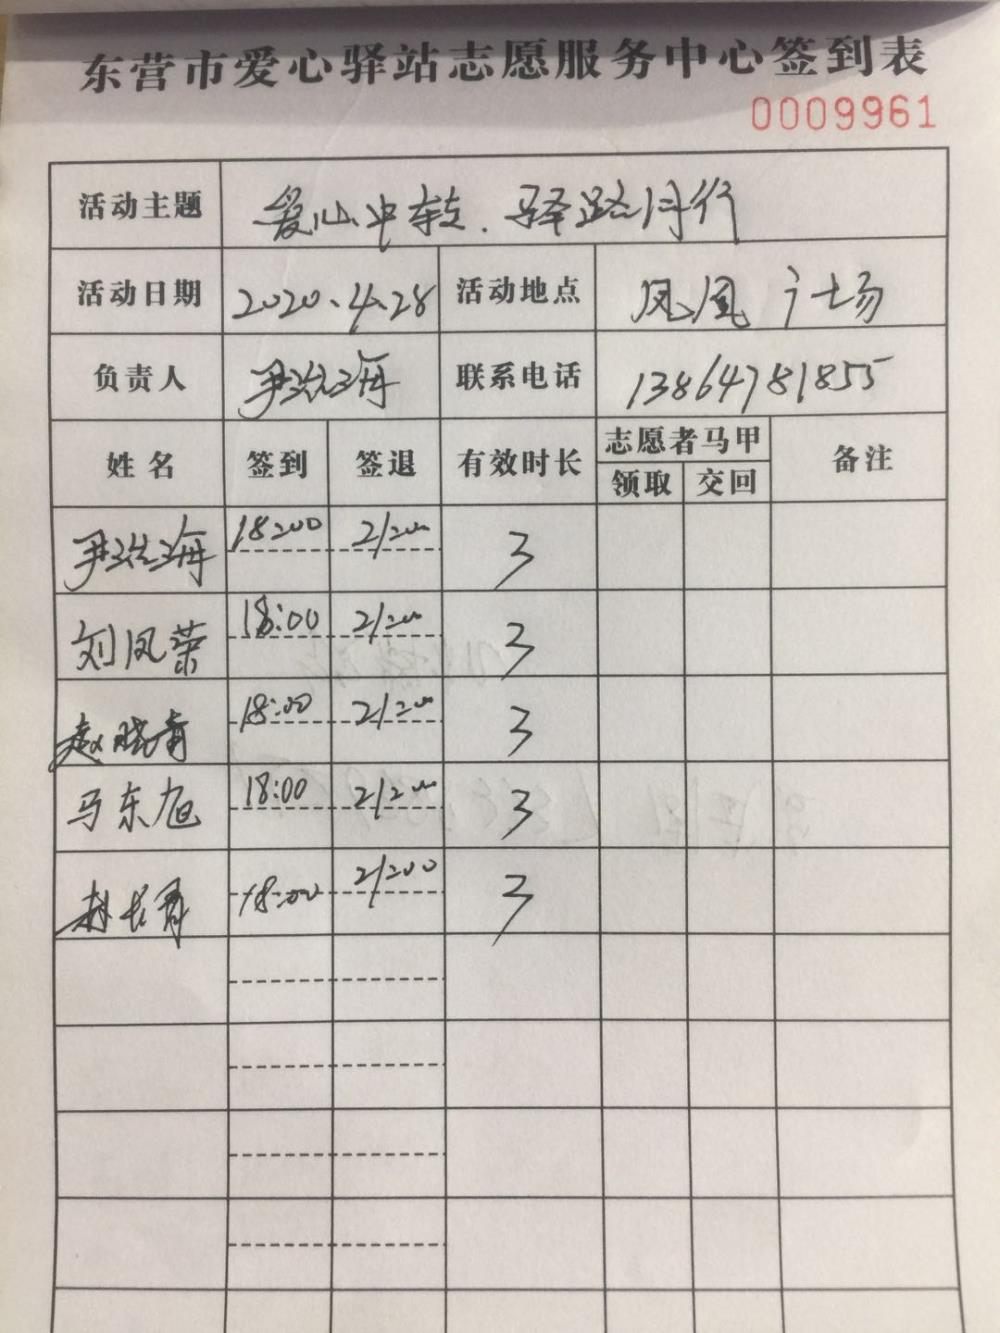 东营市爱心驿站志愿服务中心签到表
0009961
活动主题 爱心中转.驿路同行
活动日期 2020.4.28 活动地点 凤凰广场
负责人 尹洪海 联系电话 13864781855
姓名 签到 签退 有效时长 志愿者马甲 备注
领取 交回
尹洪海 18:00 21:00 3
刘凤荣 18:00 21:00 3
赵晓青 18:00 21:00 3
马东旭 18:00 21:00 3
赵长青 18:00 21:00 3